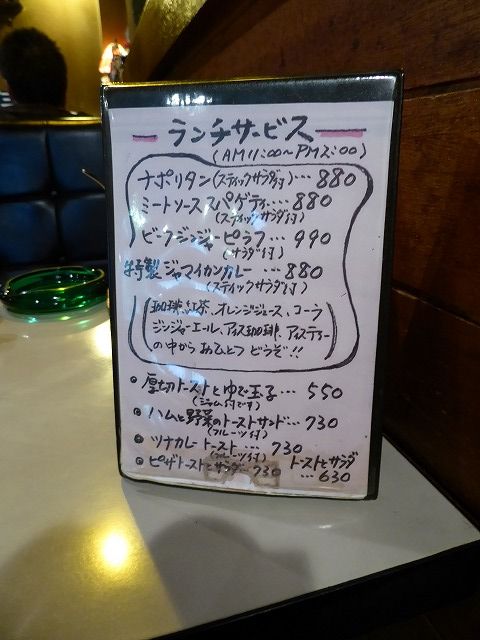 ランチサービス
(AM11:00~PM2:00)
ナポリタン(スティックサラダ付)…880
ミートソーススパゲティ…880
(スティックサラダ付)
ビーフジンジャーピラフ…990
(サラダ付)
特製ジャマイカンカレー…880
(スティックサラダ付)
珈琲、紅茶、オレンジジュース、コーラ
ジンジャーエール、アイス珈琲、アイスティー
の中からおひとつどうぞ!!
●厚切トーストとゆで玉子…550
(ジャム付です)
●ハムと野菜のトーストサンド…730
(フルーツ付)
●ツナカレートースト…730
(フルーツ付)
●ピザトーストとサラダ 730
トーストとサラダ
…630